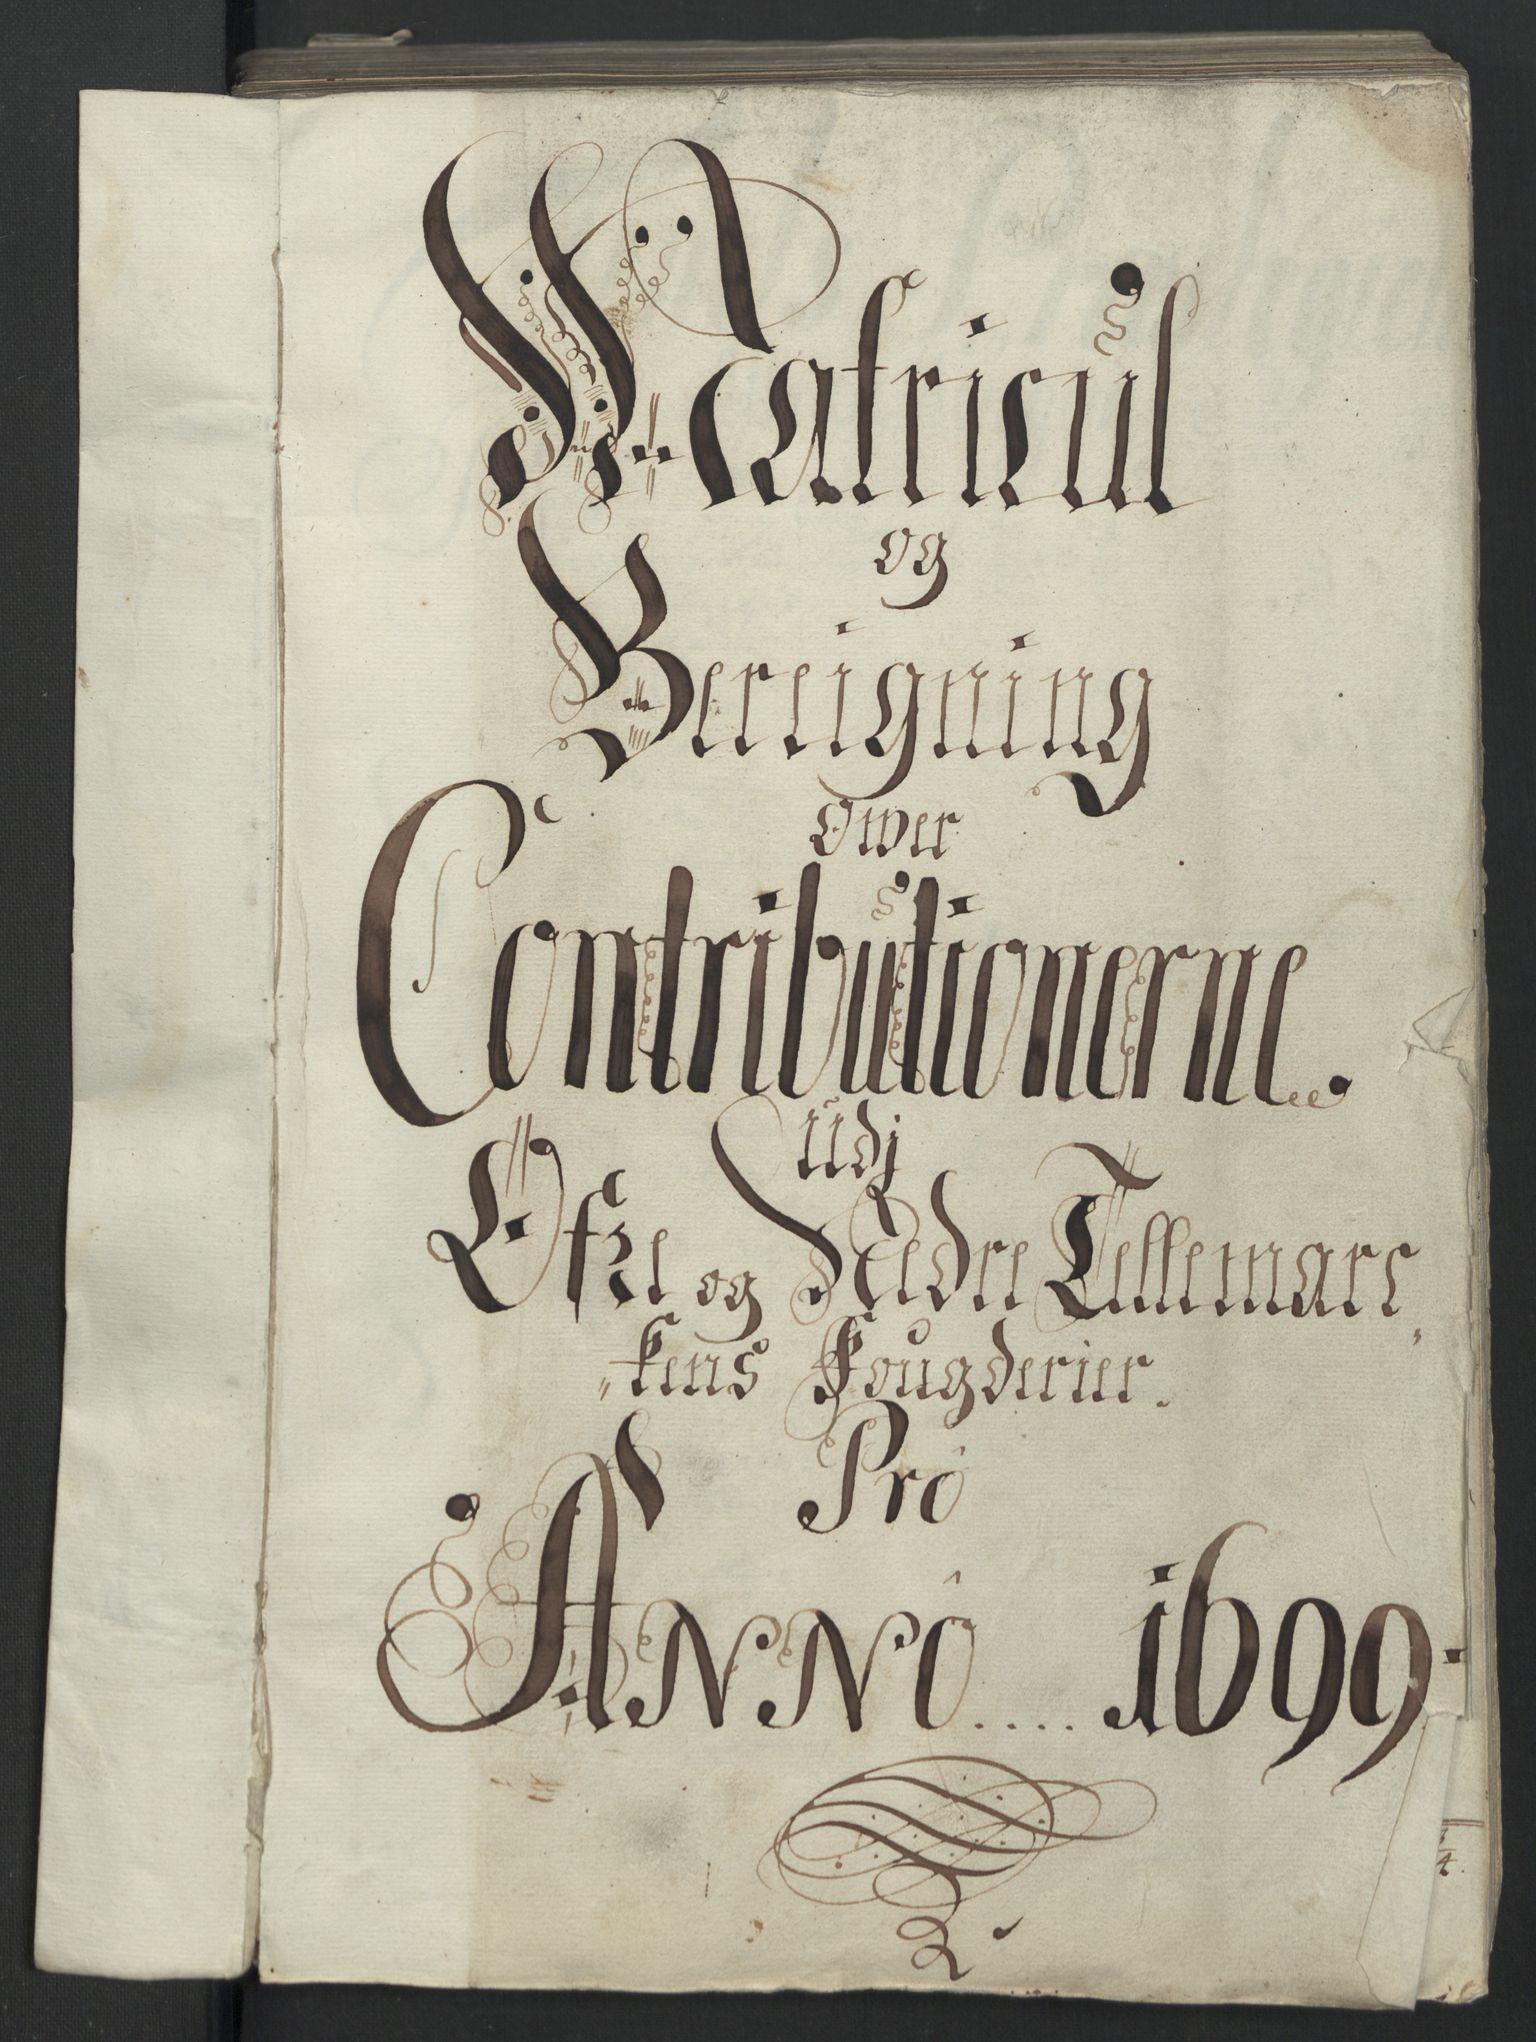 Matricul
og
Bereigning
ower
Contributionerne
udj
Øfre og Nedre Tellemarc
"kens Fougderier.
Pro
Anno.... 1699.
2.